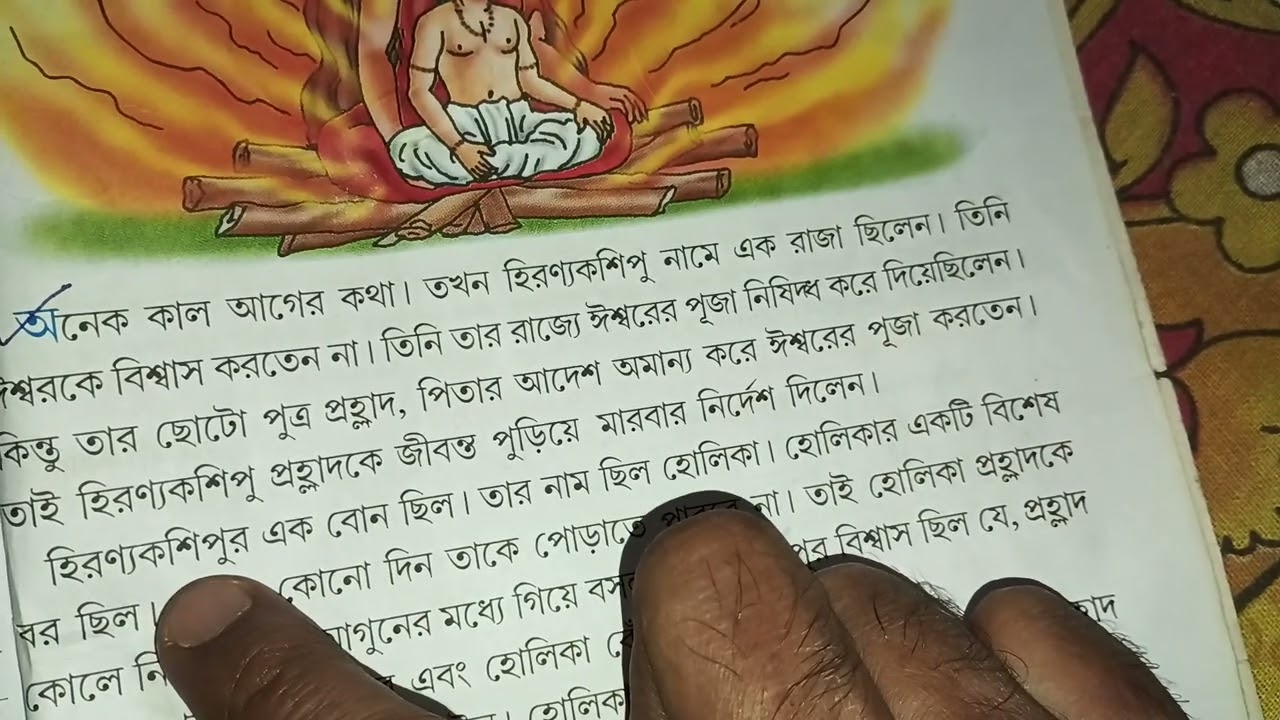 অনেক কাল আগের কথা। তখন হিরণ্যকশিপু নামে এক রাজা ছিলেন। তিনি
ঈশ্বরকে বিশ্বাস করতেন না। তিনি তার রাজ্যে ঈশ্বরের পূজা নিষিদ্ধ করে দিয়েছিলেন।
কিন্তু তার ছোটো পুত্র প্রহ্লাদ, পিতার আদেশ অমান্য করে ঈশ্বরের পূজা করতেন।
তাই হিরণ্যকশিপু প্রহ্লাদকে জীবন্ত পুড়িয়ে মারবার নির্দেশ দিলেন।
হিরণ্যকশিপুর এক বোন ছিল। তার নাম ছিল হোলিকা। হোলিকার একটি বিশেষ
বর ছিল। কোনো দিন তাকে পোড়াতে না। তাই হোলিকা প্রহ্লাদকে
কোলে মধ্যে গিয়ে বিশ্বাস ছিল যে, প্রহ্লাদ
এবং হোলিকা